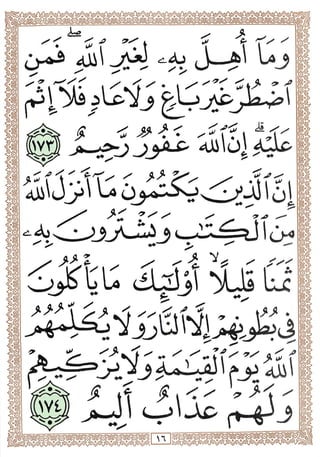 وَمَآ أُهِلَّ بِهِۦ لِغَيْرِ ٱللَّهِ ۖ فَمَنِ
ٱضْطُرَّ غَيْرَ بَاغٍ وَلَا عَادٍ فَلَآ إِثْمَ
عَلَيْهِ ۚ إِنَّ ٱللَّهَ غَفُورٌ رَّحِيمٌ ١٧٣
إِنَّ ٱلَّذِينَ يَكْتُمُونَ مَآ أَنزَلَ ٱللَّهُ
مِنَ ٱلْكِتَٰبِ وَيَشْتَرُونَ بِهِۦ
ثَمَنًا قَلِيلًا ۙ أُو۟لَٰٓئِكَ مَا يَأْكُلُونَ
فِى بُطُونِهِمْ إِلَّا ٱلنَّارَ وَلَا يُكَلِّمُهُمُ
ٱللَّهُ يَوْمَ ٱلْقِيَٰمَةِ وَلَا يُزَكِّيهِمْ
وَلَهُمْ عَذَابٌ أَلِيمٌ ١٧٤
١٦